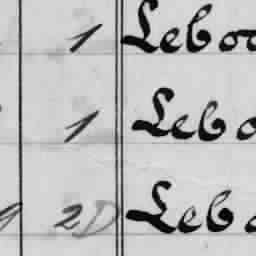 1 Leboo
1 Lebo
9 2D Lebo